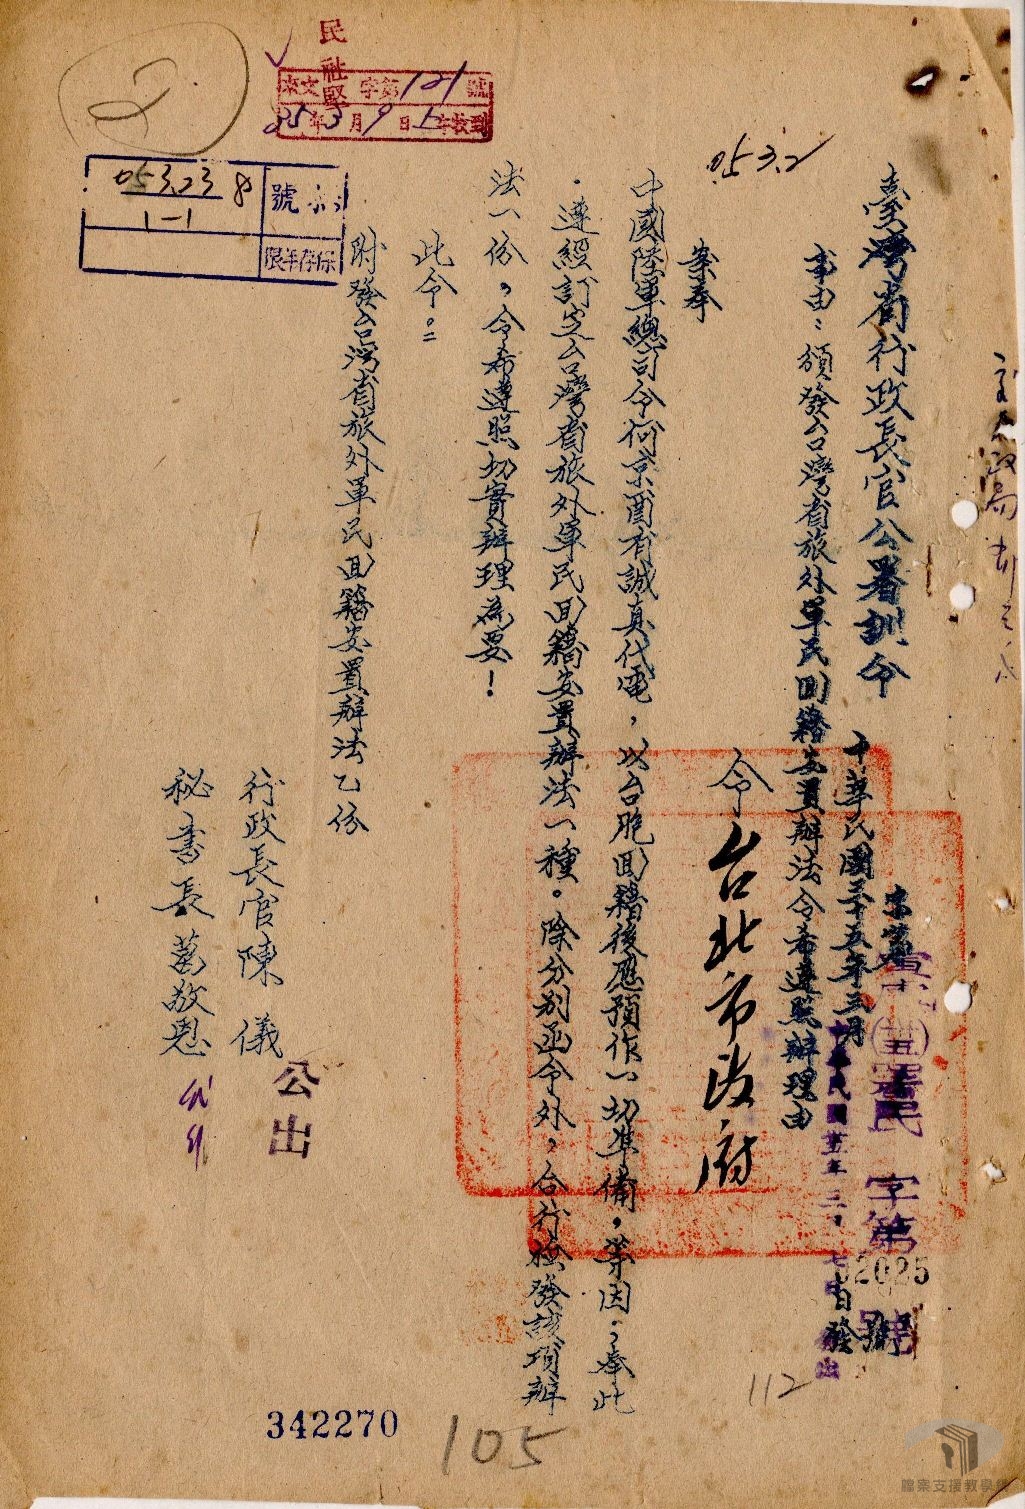 臺灣省行政長官公署訓令
中華民國三十五年三月 日發
署民 字第 號
02025
事由：頒發台灣省旅外軍民回籍安置辦法令希遵照辦理由
令台北市政府
案奉
中國陸軍總司令何京酉有誠真代電，以台胞回籍後應預作一切準備，等因；奉此
，遵經訂定台灣省旅外軍民回籍安置辦法一種。除分別函令外，合行檢發該項辦
法一份，令希遵照切實辦理為要！
此令。
附發台灣省旅外軍民回籍安置辦法乙份
行政長官陳 儀
公出
秘書長葛敬恩
民社
來文 字第121號
35年3月9日 收到
053.2
053.23
1-1
號
保存年限
112
105
342270
檔案支援教學網